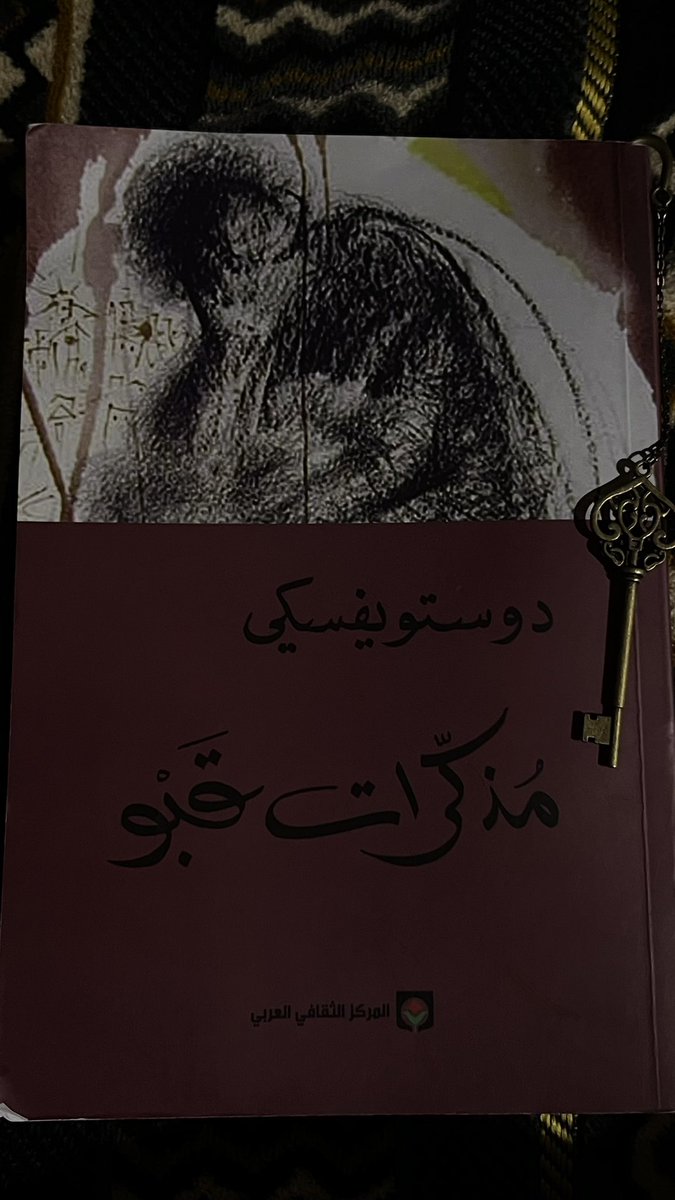 دوستويفسكي
مُذكّرات قَبْو
المركز الثقافي العربي